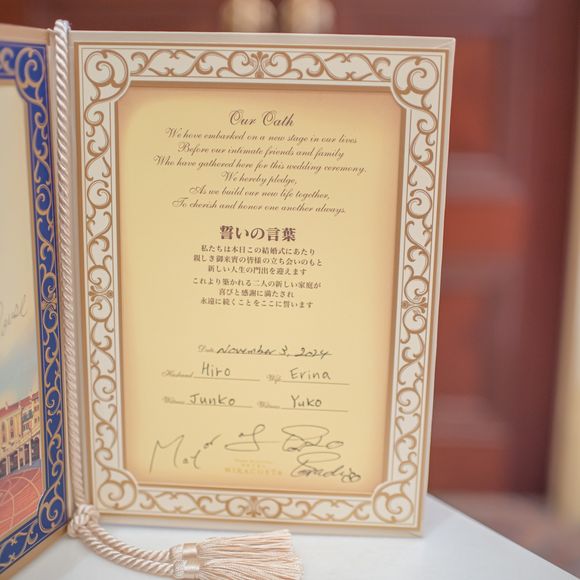 Our Oath
We have embarked on a new stage in our lives
Before our intimate friends and family
Who have gathered here for this wedding ceremony.
We hereby pledge,
As we build our new life together,
To cherish and honor one another always.
誓いの言葉
私たちは本日この結婚式にあたり
親しき御来賓の皆様の立ち会いのもと
新しい人生の門出を迎えます
これより築かれる二人の新しい家庭が
喜びと感謝に満たされ
永遠に続くことをここに誓います
Date November 3, 2024
Husband Hiro Wife Erina
Witness Junko Witness Yuko
MIRACOSTA